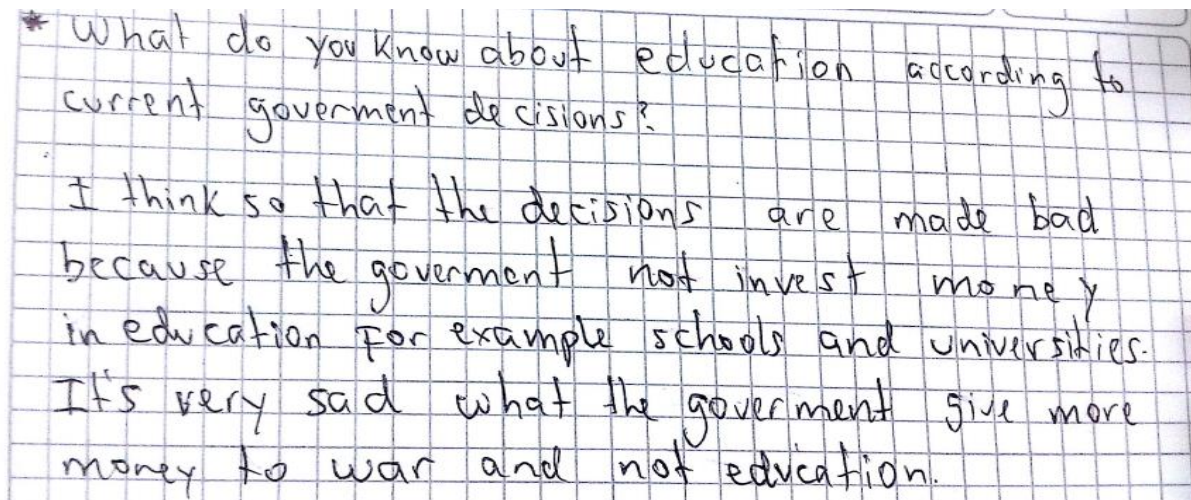 * What do you know about education according to
current goverment decisions?
I think so that the decisions are made bad
because the goverment not invest money
in education For example schools and universities.
It's very sad what the goverment give more
money to war and not education.